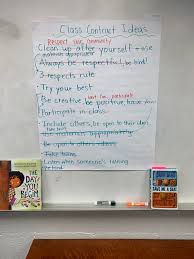 Class Contract Ideas
Respect the community
Clean up after yourself + use
materials appropriately
Always be respectful & be kind!
3 respects rule
Try your best
Be creative be positive
Participate in class
Include others, be open to their ideas
Use materials appropriately
Be open to others ideas
Take turns
Listen when someone's talking
Be kind
THE
DAY
YOU
BEGIN
WE ARE A